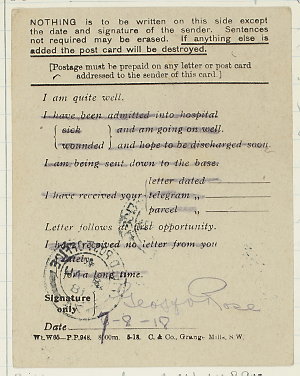 NOTHING is to be written on this side except
the date and signature of the sender. Sentences
not required may be erased. If anything else is
added the post card will be destroyed.
[Postage must be prepaid on any letter or post card
addressed to the sender of this card.]
I am quite well.
I have been admitted into hospital
{ sick } and am going on well.
{ wounded } and hope to be discharged soon.
I am being sent down to the base.
{ letter dated
I have received your { telegram ,,
{ parcel ,,
Letter follows at first opportunity.
I have received no letter from you
{ lately
{ for a long time.
Signature } Rose
only }
Date -8-18
Wt. W65—P.P.948. 8000m. 5-18. C. & Co., Grange Mills, S.W.